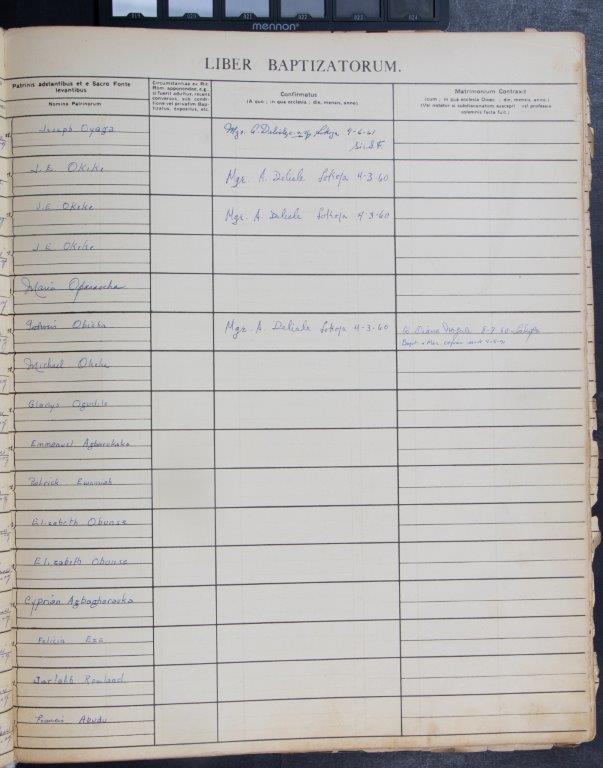 019 020 021 022 023
mennon
LIBER BAPTIZATORUM.
Patrinis adstantibus et e Sacro Fonte
levantibus
Nomina Patrinorum
Circumstantiae ex Rit.
Rom. apponendae, e.g.,
si fuerit adultus, recens
conversus, sub condi-
tione vel privatim Bap-
tizatus, expositus, etc.
Confirmatus
(A quo ; in qua ecclesia ; die, mensis, anno)
Matrimonium Contraxit
(cum ; in qua ecclesia Dioec. ; die, mensis, anno.)
(Vel notetur si subdiaconatum suscepit vel professio
solemnis facta fuit.)
Joseph Oyaga
Mgr. A Delisle Lokoja 9-6-61
J.E. Okeke
Mgr. A. Delisle Lokoja 4-3-60
J.E Okeke
Mgr. A. Delisle Lokoja 4-3-60
J.E Okeke
Maria
Obiora
Mgr. A. Delisle Lokoja 4-3-60
to Diana 8-7-60
Bapt
Michael Okeke
Gladys Ogudile
Emmanuel Agbarukaka
Patrick Ewaniah
Elizabeth Obunse
Elizabeth Obunse
Cyprian
Felicia Eze
Jarlath Rowland
Francis Abudu